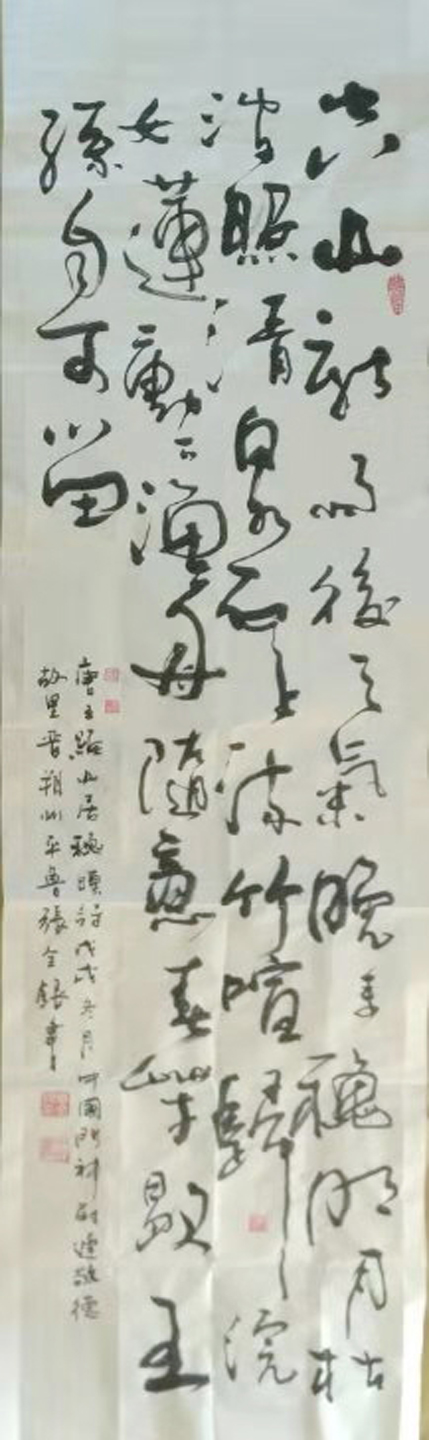 空山新雨後天氣晚來穐明月松
間照清泉石上流竹喧歸浣
女蓮動下漁舟隨意春芳歇王
孫自可留
唐王維山居穐暝詩戊戌冬月中國門神尉遲敬德
故里晋朔州平魯張全銀書